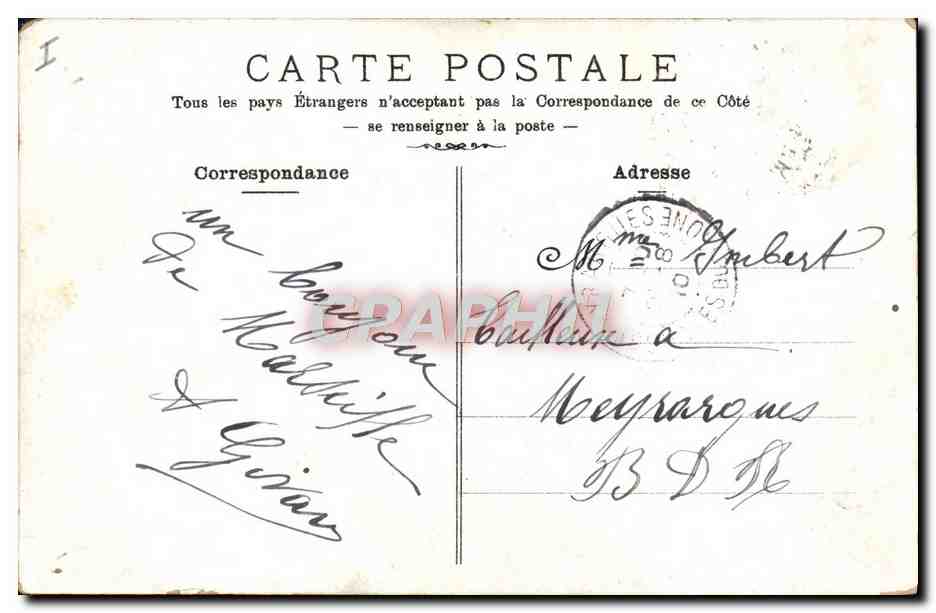 I
CARTE POSTALE
Tous les pays Étrangers n'acceptant pas la Correspondance de ce Côté
— se renseigner à la poste —
Correspondance
Adresse
un bonjour
de Marseille
A Girard
Mme Imbert
Tailleuse a
Meyrargues
B D R
CPAPHIL